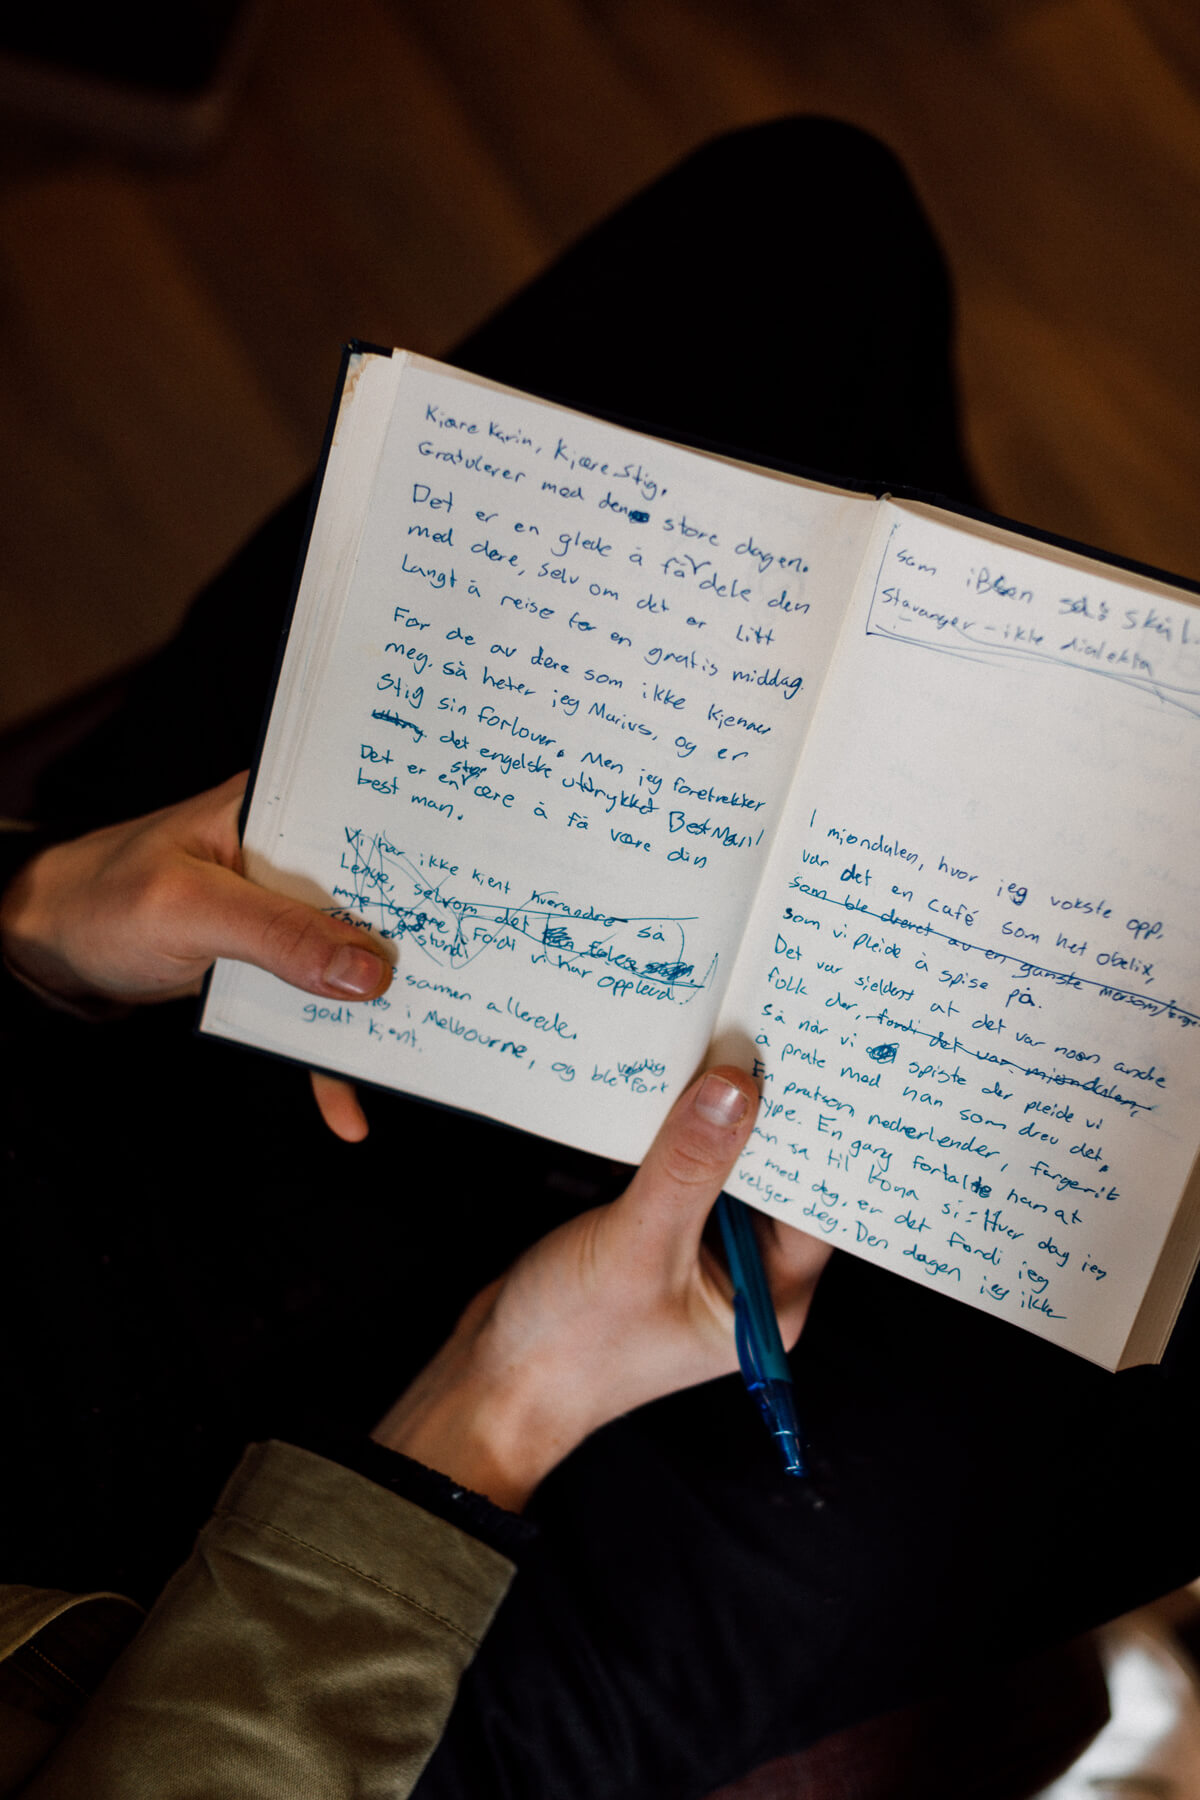 Kjære Karin, Kjære Stig.
Gratulerer med den store dagen.
Det er en glede å få dele den
med dere, selv om det er litt
Langt å reise for en gratis middag.
For de av dere som ikke kjenner
meg, så heter jeg Marius, og er
Stig sin forlover. Men jeg foretrekker
det engelske uttrykket Best Man!
Det er en stor ære å få være din
best man.
Vi har ikke kjent hverandre så
Lenge, selvom det
mye lengre. Fordi vi har opplevd
som en stund
samen allerede.
i Melbourne, og ble veldig fort
godt kjent.
som iBsen sa: skal
Stavanger - ikke dialekta
I mjøndalen, hvor jeg vokste opp,
var det en café som het obelix,
som ble drevet av en ganske morsom
som vi pleide å spise på.
Det var sjeldent at det var noen andre
folk der, fordi det var mjøndalen,
så når vi spiste der pleide vi
å prate med han som drev det.
En pratsom nederlender, fargerik
type. En gang fortalte han at
han sa til kona si: Hver dag jeg
er med deg, er det fordi jeg
velger deg. Den dagen jeg ikke